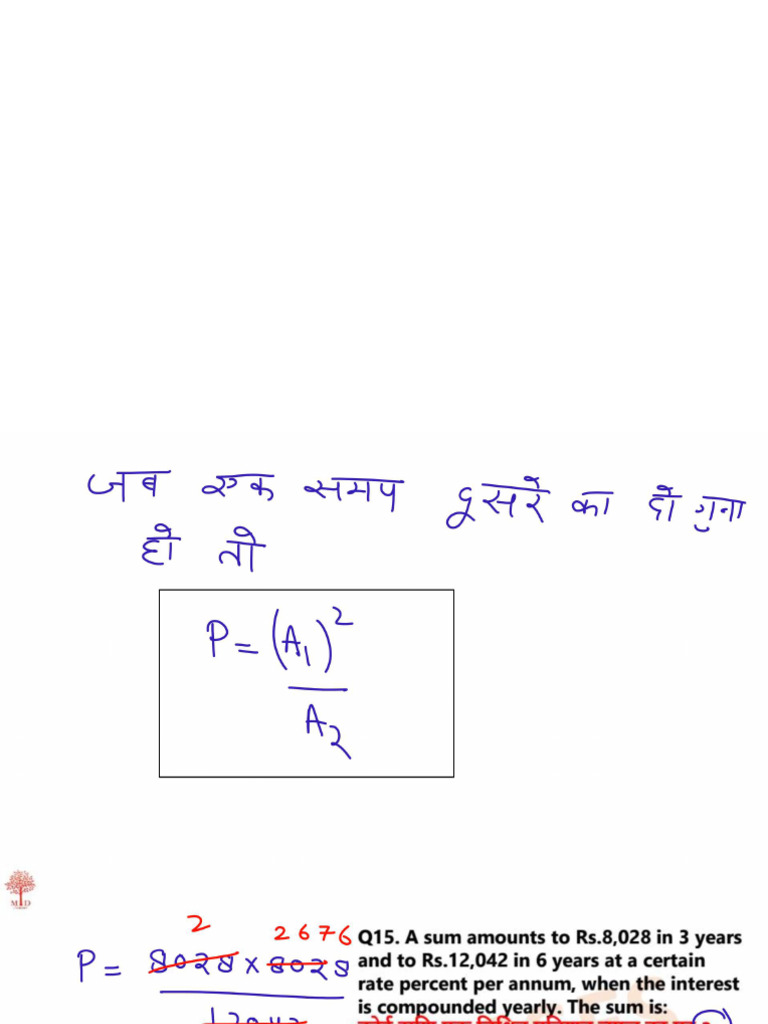 जब एक समय दूसरे का दो गुना
हो तो
P = (A₁)²
A₂
M D
2 2676
P = 8028 × 8028
12042
Q15. A sum amounts to Rs.8,028 in 3 years
and to Rs.12,042 in 6 years at a certain
rate percent per annum, when the interest
is compounded yearly. The sum is: